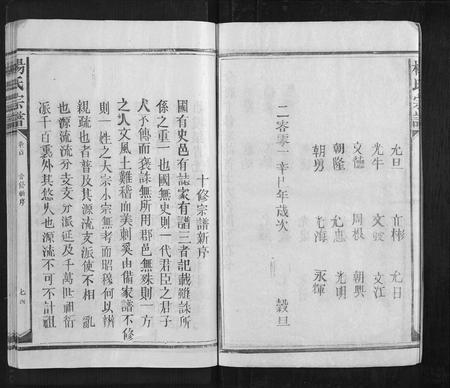 楊氏宗譜
允旦 育彬 允日
光牛 文獻 文江
文德 周根 朝興
朝隆 光惠 光明
朝男 七海 永輝
二零零一辛巳年歲次 榖旦
十修宗譜新序
國有史邑有誌家有譜三者記載雖殊所
係之重一也國無史則一代君臣之君子
不傳而褒誅無所用郡邑無乘則一方
之人文風土難稽而美刺奚由備家譜不修
則一姓之大宗小宗無考而昭穆何以辨
親疏也者普及其源流支派使不相亂
也源流流分支支分派延及千萬世祖衍
派千百裏外其悠久也源流不可不計祖
楊氏宗譜 卷首 首修新序 七四